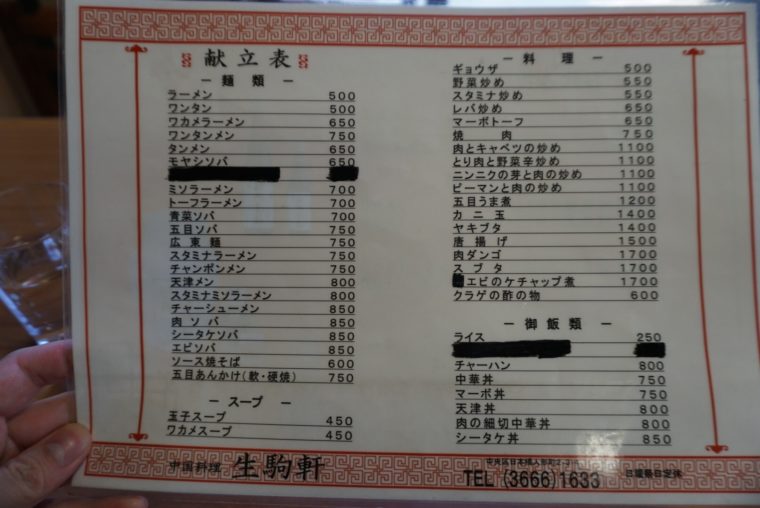 献立表
― 麺類 ―
ラーメン 500
ワンタン 500
ワカメラーメン 650
ワンタンメン 750
タンメン 650
モヤシソバ 650
ミソラーメン 700
トーフラーメン 700
青菜ソバ 700
五目ソバ 750
広東麺 750
スタミナラーメン 750
チャンポンメン 750
天津メン 800
スタミナミソラーメン 800
チャーシューメン 850
肉ソバ 850
シータケソバ 850
エビソバ 850
ソース焼そば 600
五目あんかけ(軟・硬焼) 750
― スープ ―
玉子スープ 450
ワカメスープ 450
― 料理 ―
ギョウザ 500
野菜炒め 550
スタミナ炒め 550
レバ炒め 650
マーボトーフ 650
焼肉 750
肉とキャベツの炒め 1100
とり肉と野菜辛炒め 1100
ニンニクの芽と肉の炒め 1100
ピーマンと肉の炒め 1100
五目うま煮 1200
カニ玉 1400
ヤキブタ 1400
唐揚げ 1500
肉ダンゴ 1700
スブタ 1700
エビのケチャップ煮 1700
クラゲの酢の物 600
― 御飯類 ―
ライス 250
チャーハン 800
中華丼 750
マーボ丼 750
天津丼 800
肉の細切中華丼 800
シータケ丼 850
中国料理 生駒軒
中央区日本橋人形町
TEL (3666)1633
日曜祭日定休